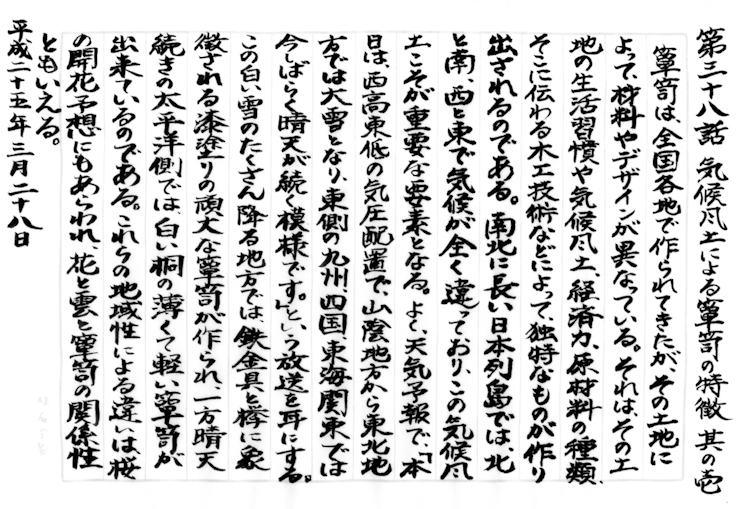 第三十八話 気候風土による簞笥の特徴 其の壱
簞笥は、全国各地で作られてきたが、その土地に
よって、材料やデザインが異なっている。それは、その土
地の生活習慣や気候風土、経済力、原材料の種類、
そこに伝わる木工技術などによって、独特なものが作り
出されるのである。南北に長い日本列島では、北
と南、西と東で気候が全く違っており、この気候風
土こそが重要な要素となる。よく、天気予報で、「本
日は、西高東低の気圧配置で、山陰地方から東北地
方では大雪となり、東側の九州、四国、東海、関東では
今しばらく晴天が続く模様です。」という放送を耳にする。
この白い雪のたくさん降る地方では、鉄金具と欅に象
徴される漆塗りの頑丈な簞笥が作られ、一方晴天
続きの太平洋側では、白い桐の薄くて軽い簞笥が
出来ているのである。これらの地域性による違いは桜
の開花予想にもあらわれ、花と雲と簞笥の関係性
ともいえる。
平成二十五年三月二十八日